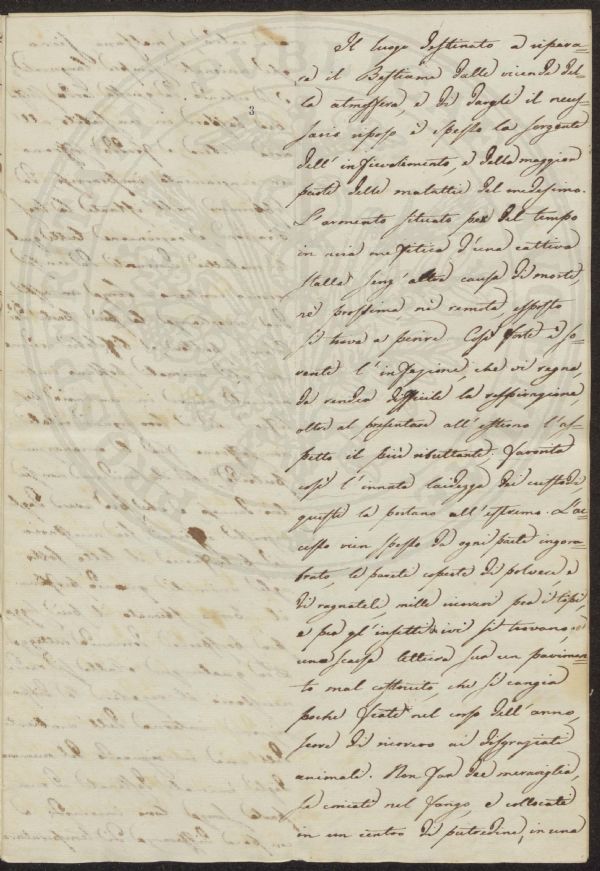 3
Il luogo destinato a ripara=
re il Bestiame dalle vicende del=
la atmosfera, e di dargli il neces=
sario riposo è spesso la sorgente
dell' infievolimento, e della maggior
parte delle malattie del medesimo.
L'armento situato per del tempo
in aria mefitica d'una cattiva
stalla senz' altra causa di morte,
nè prossima nè remota esposto
si trova a perire. Così forte è so=
vente l'infezione, che vi regna,
da render difficile la respirazione
oltre al presentare all' esterno l'as=
petto il più ributtante. Favorita
così l'innata laidezza dei custodi
questi la portano all' estremo. L'ac=
cesso vien spesso da ogni parte ingom=
brato, le pareti coperte di polvere, e
di ragnatele, mille ricoveri pra i topi,
e per gl'insetti ivi si trovano, ed
una scarsa lettiera sur un pavimen=
to mal costruito, che si cangia
poche fiate nel corso dell' anno,
serve di ricovero ai disgraziati
animali. Non far dee meraviglia,
se coricati nel fango, e collocati
in un centro di putredine, in una